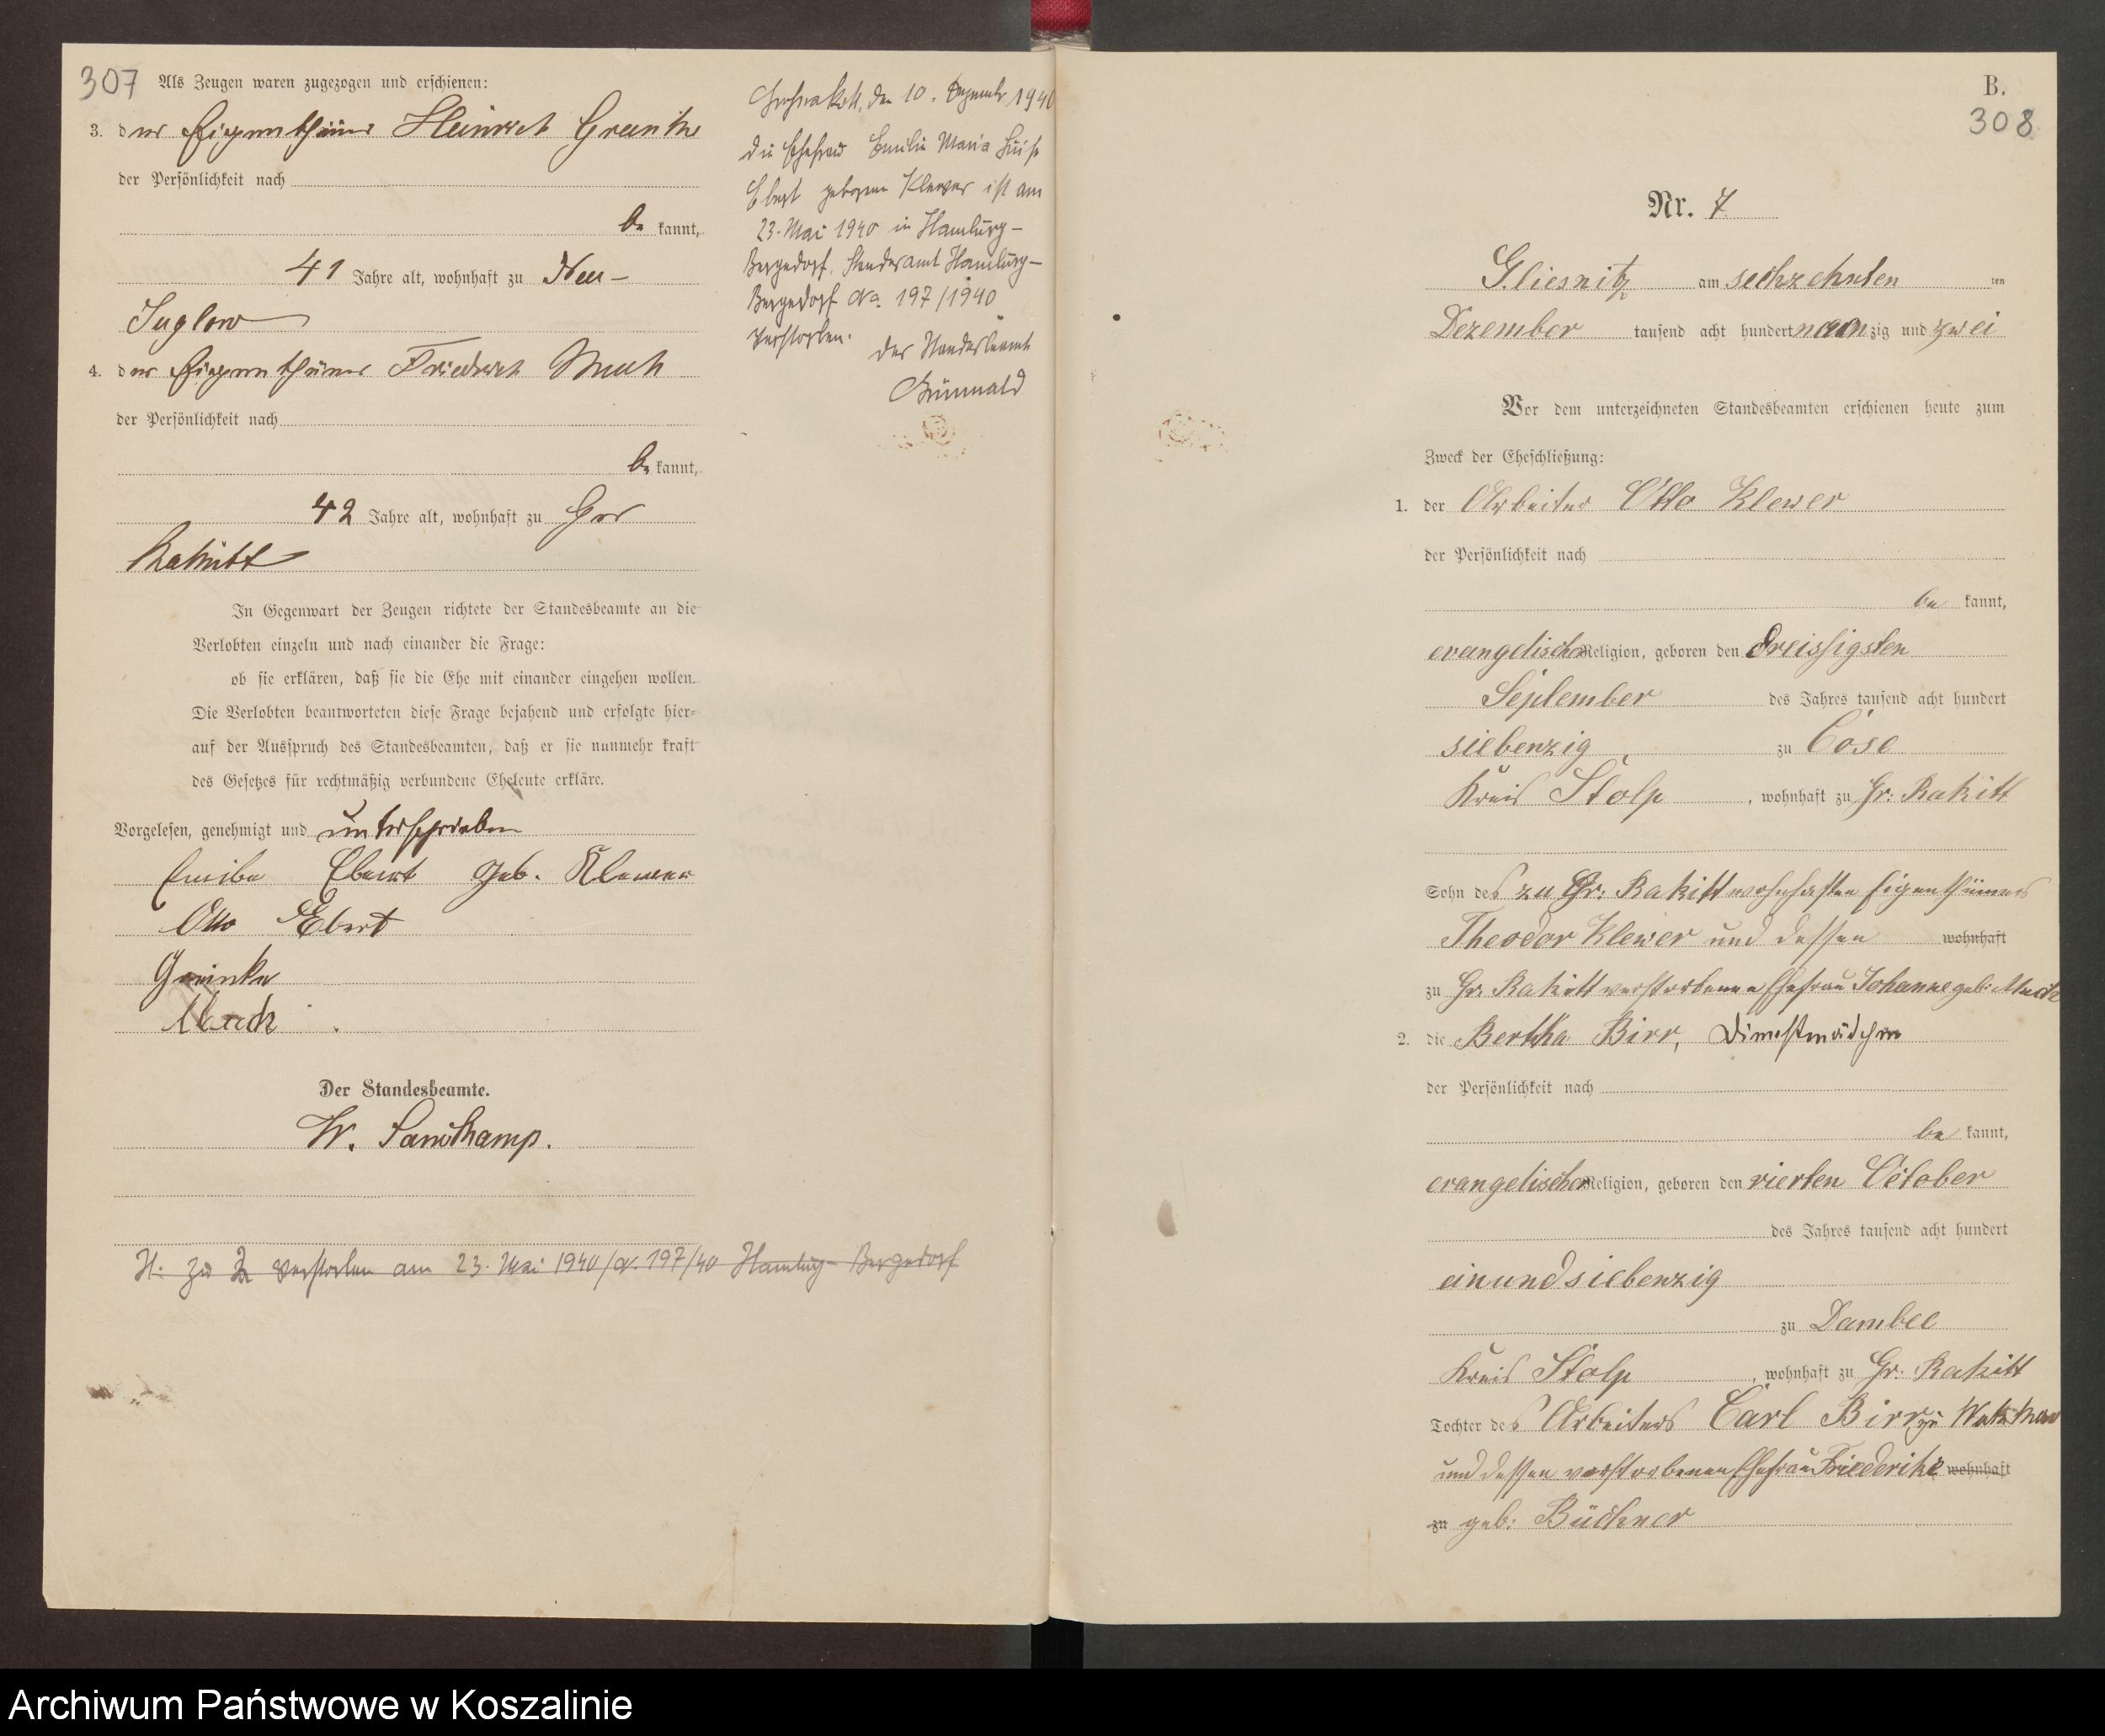 307
Als Zeugen waren zugezogen und erschienen:
3. der Eigenthümer Heinrich
der Persönlichkeit nach
be kannt,
41 Jahre alt, wohnhaft zu Neu-
Juglow
4. der Eigenthümer Friedrich Much
der Persönlichkeit nach
be kannt,
42 Jahre alt, wohnhaft zu Gr
Rakitt
In Gegenwart der Zeugen richtete der Standesbeamte an die
Verlobten einzeln und nach einander die Frage:
ob sie erklären, daß sie die Ehe mit einander eingehen wollen.
Die Verlobten beantworteten diese Frage bejahend und erfolgte hier-
auf der Ausspruch des Standesbeamten, daß er sie nunmehr kraft
des Gesetzes für rechtmäßig verbundene Eheleute erkläre.
Vorgelesen, genehmigt und unterschrieben
Emilie Ebert geb. Klewer
Otto Ebert
Greinke
Much
Der Standesbeamte.
W. Sandkamp.
H: zu verstorben am 23. Mai 1940/Nr. 197/40 Hamburg-Bergedorf
Großrakitt, den 10. Dezember 1940
Die Ehefrau Emilie Maria Luise
Ebert geborene Klewer ist am
23. Mai 1940 in Hamburg-
Bergedorf, Standesamt Hamburg-
Bergedorf No. 197/1940
verstorben.
Der Standesbeamte
Grünwald
B.
308
Nr. 7
Gliesnitz am sechzehnten ten
Dezember tausend acht hundert neunzig und zwei
Vor dem unterzeichneten Standesbeamten erschienen heute zum
Zweck der Eheschließung:
1. der Arbeiter Otto Klewer
der Persönlichkeit nach
be kannt,
evangelischer Religion, geboren den dreissigsten
September des Jahres tausend acht hundert
siebenzig zu Cose
Kreis Stolp, wohnhaft zu Gr: Rakitt
Sohn des zu Gr: Rakitt wohnhaften Eigenthümers
Theodor Klewer und dessen wohnhaft
zu Gr: Rakitt verstorbenen Ehefrau Johanne geb: Much
2. die Bertha Birr, Dienstmädchen
der Persönlichkeit nach
be kannt,
evangelischer Religion, geboren den vierten October
des Jahres tausend acht hundert
einundsiebenzig
zu Dambee
Kreis Stolp, wohnhaft zu Gr: Rakitt
Tochter des Arbeiters Carl Birr zu
und dessen verstorbenen Ehefrau Friederike wohnhaft
zu geb: Büchner
Archiwum Państwowe w Koszalinie